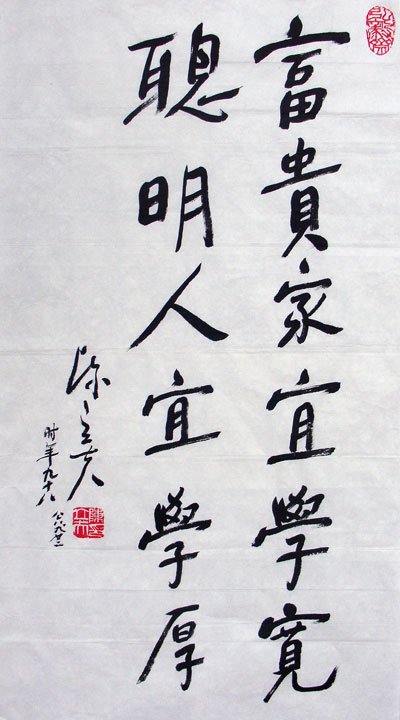 富貴家宜學寬
聰明人宜學厚
陳立夫
时年九十八